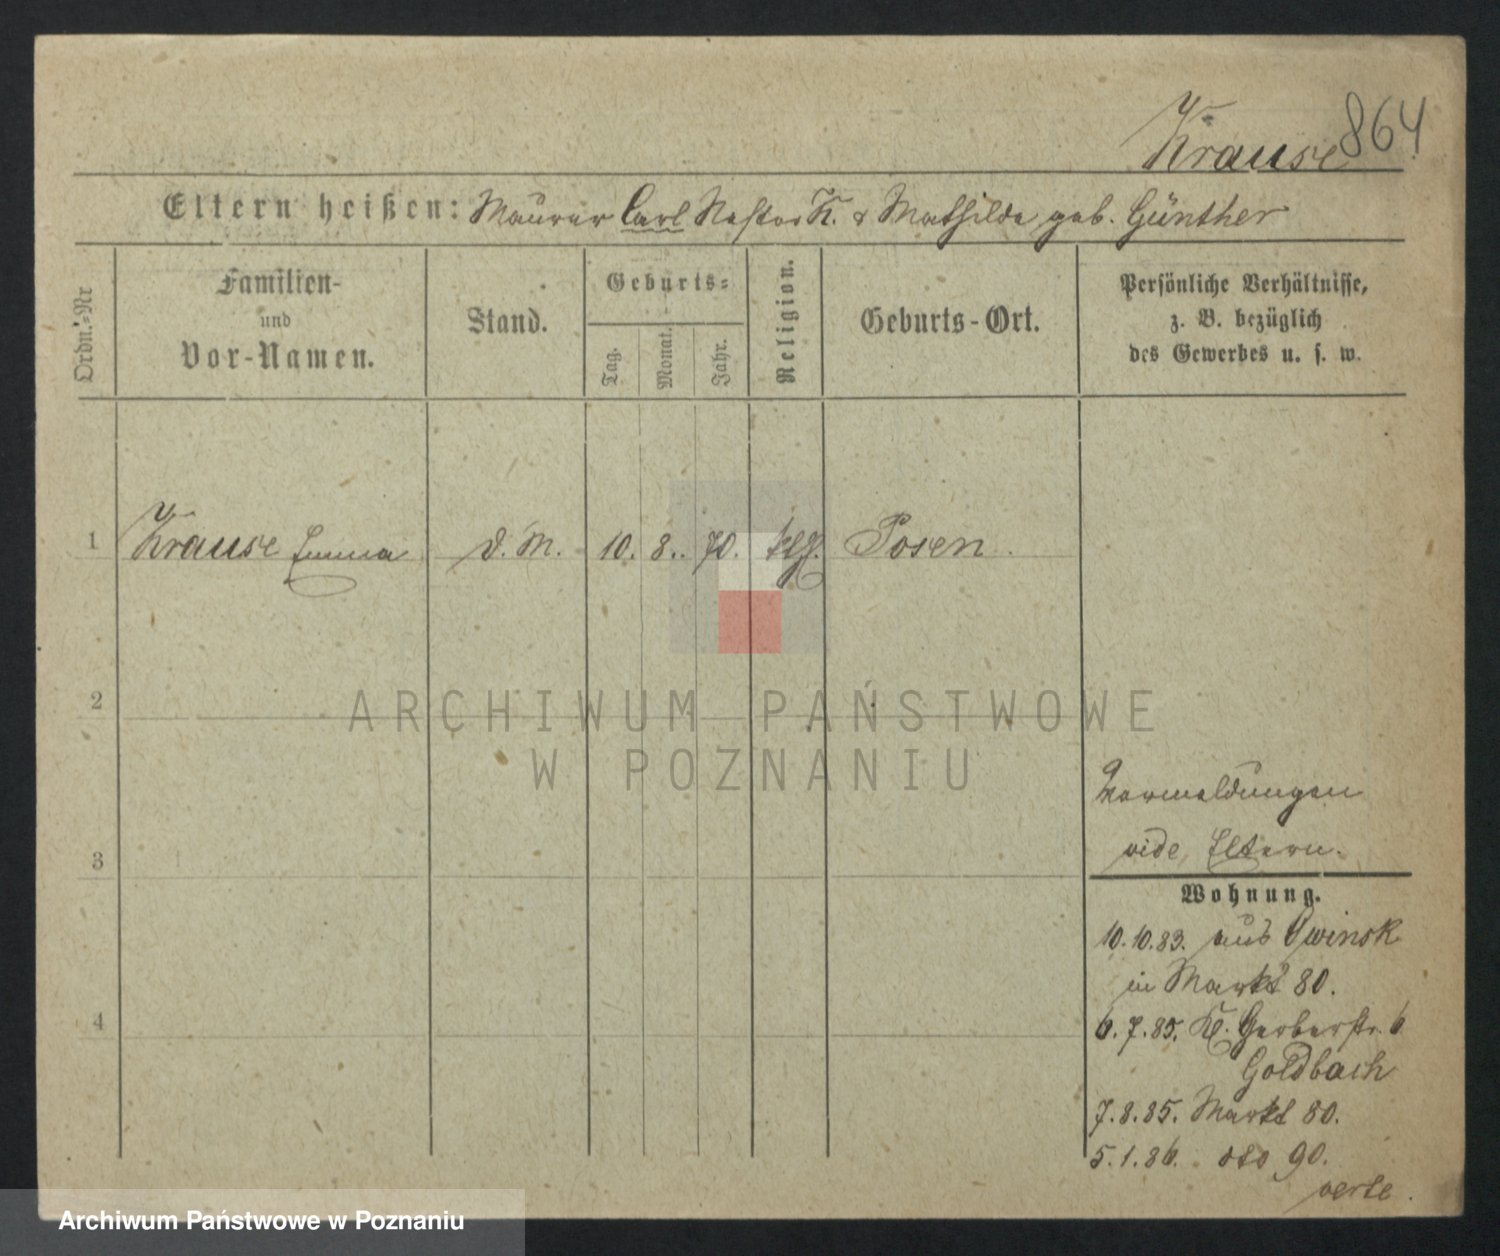 Krause
864
Eltern heißen: Maurer Carl Nestor K. & Mathilde geb. Günther
Ordn.-Nr
Familien-
und
Vor-Namen.
Stand.
Geburts-
Tag.
Monat.
Jahr.
Religion.
Geburts-Ort.
Persönliche Verhältnisse,
z. B. bezüglich
des Gewerbes u. s. w.
1 Krause Emma d. M. 10. 8. 70. Posen
2
ARCHIWUM PAŃSTWOWE
W POZNANIU
Vormeldungen
vide Eltern.
3
Wohnung.
10.10.83. aus Owinsk
in Markt 80.
4
6.7.85. Kl. Gerberstr. 6
Goldbach
7.8.85. Markt 80.
5.1.86. dto 90.
verte.
Archiwum Państwowe w Poznaniu